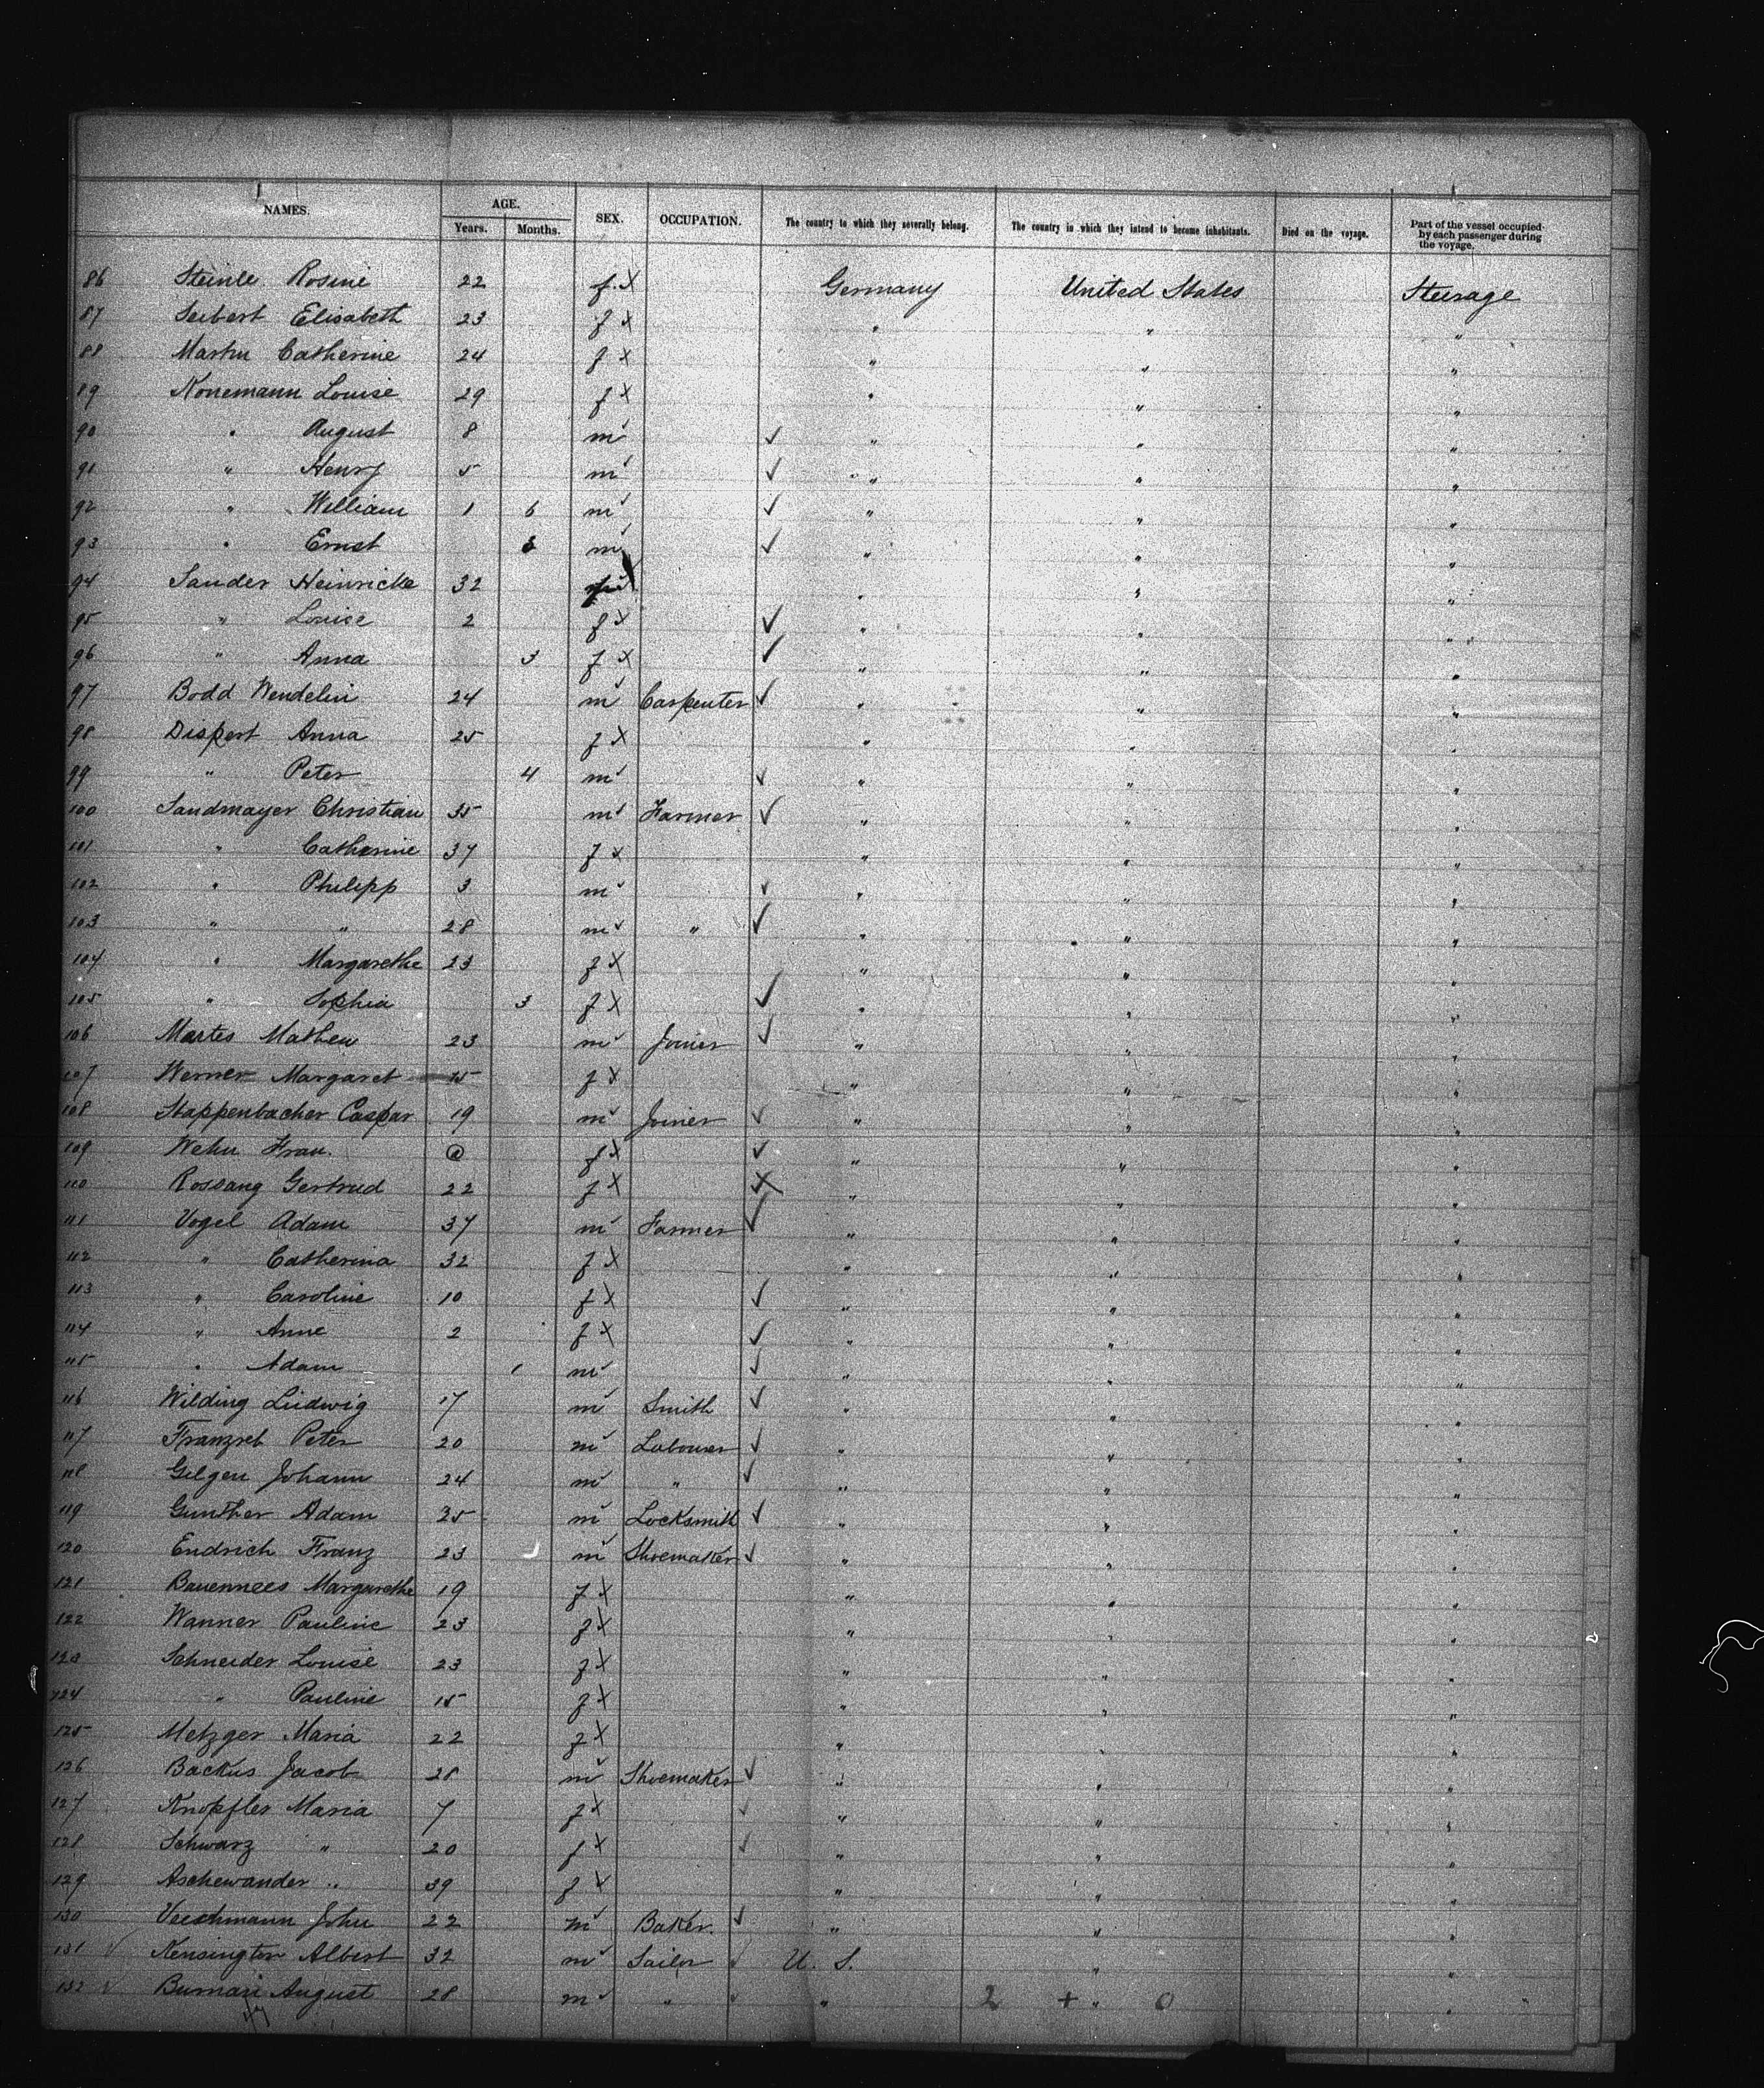 NAMES. AGE. SEX. OCCUPATION. The country to which they severally belong. The country in which they intend to become inhabitants. Died on the voyage. Part of the vessel occupied by each passenger during the voyage.
Years. Months.
86 Steinle Rosine 22 f x Germany United States Steerage
87 Seibert Elisabeth 23 f x " " "
88 Martin Catherine 24 f x " " "
89 Konemann Louise 29 f x " " "
90 " August 8 m ✓ ✓ " " "
91 " Henry 5 m ✓ ✓ " " "
92 " William 1 6 m ✓ ✓ " " "
93 " Ernst 3 m ✓ ✓ " " "
94 Sander Heinricke 32 f x " " "
95 " Louise 2 f x ✓ " " "
96 " Anna 3 f x ✓ " " "
97 Bodd Wendelin 24 m ✓ Carpenter ✓ " " "
98 Dispert Anna 25 f x " " "
99 " Peter 4 m ✓ ✓ " " "
100 Sandmayer Christian 35 m ✓ Farmer ✓ " " "
101 " Catherine 37 f x " " "
102 " Philipp 3 m ✓ ✓ " " "
103 " " 28 m ✓ " ✓ " " "
104 " Margarethe 23 f x " " "
105 " Sophia 3 f x ✓ " " "
106 Martes Mathew 23 m ✓ Joiner ✓ " " "
107 Werner Margaret 15 f x " " "
108 Stappenbacher Caspar 19 m ✓ Joiner ✓ " " "
109 Wehn Frau. f x ✓ " " "
110 Rossang Gertrud 22 f x x " " "
111 Vogel Adam 37 m ✓ Farmer ✓ " " "
112 " Catherina 32 f x " " "
113 " Caroline 10 f x ✓ " " "
114 " Anne 2 f x ✓ " " "
115 " Adam 1 m ✓ ✓ " " "
116 Wilding Ludwig 17 m ✓ Smith ✓ " " "
117 Franzreb Peter 20 m ✓ Labourer ✓ " " "
118 Gilgen Johann 24 m ✓ " ✓ " " "
119 Gunther Adam 25 m ✓ Locksmith ✓ " " "
120 Endrich Franz 23 m ✓ Shoemaker ✓ " " "
121 Margarethe 19 f x " " "
122 Wanner Pauline 23 f x " " "
123 Schneider Louise 23 f x " " "
124 " Pauline 15 f x " " "
125 Metzger Maria 22 f x " " "
126 Backus Jacob 28 m ✓ Shoemaker ✓ " " "
127 Knopfler Maria 7 f x ✓ " " "
128 Schwarz " 20 f x ✓ " " "
129 Aschewander " 39 f x " " "
130 John 22 m ✓ Baker. ✓ " " "
131 ✓ Kensington Albert 32 m ✓ Sailor ✓ U. S. " "
132 ✓ August 28 m ✓ " " " 2 + " 0 "